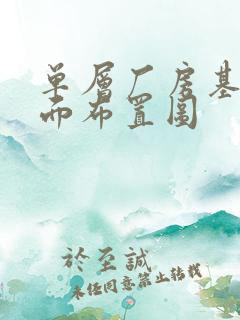 单層厂房基
而布置圖
於至誠
未经同意禁止转载